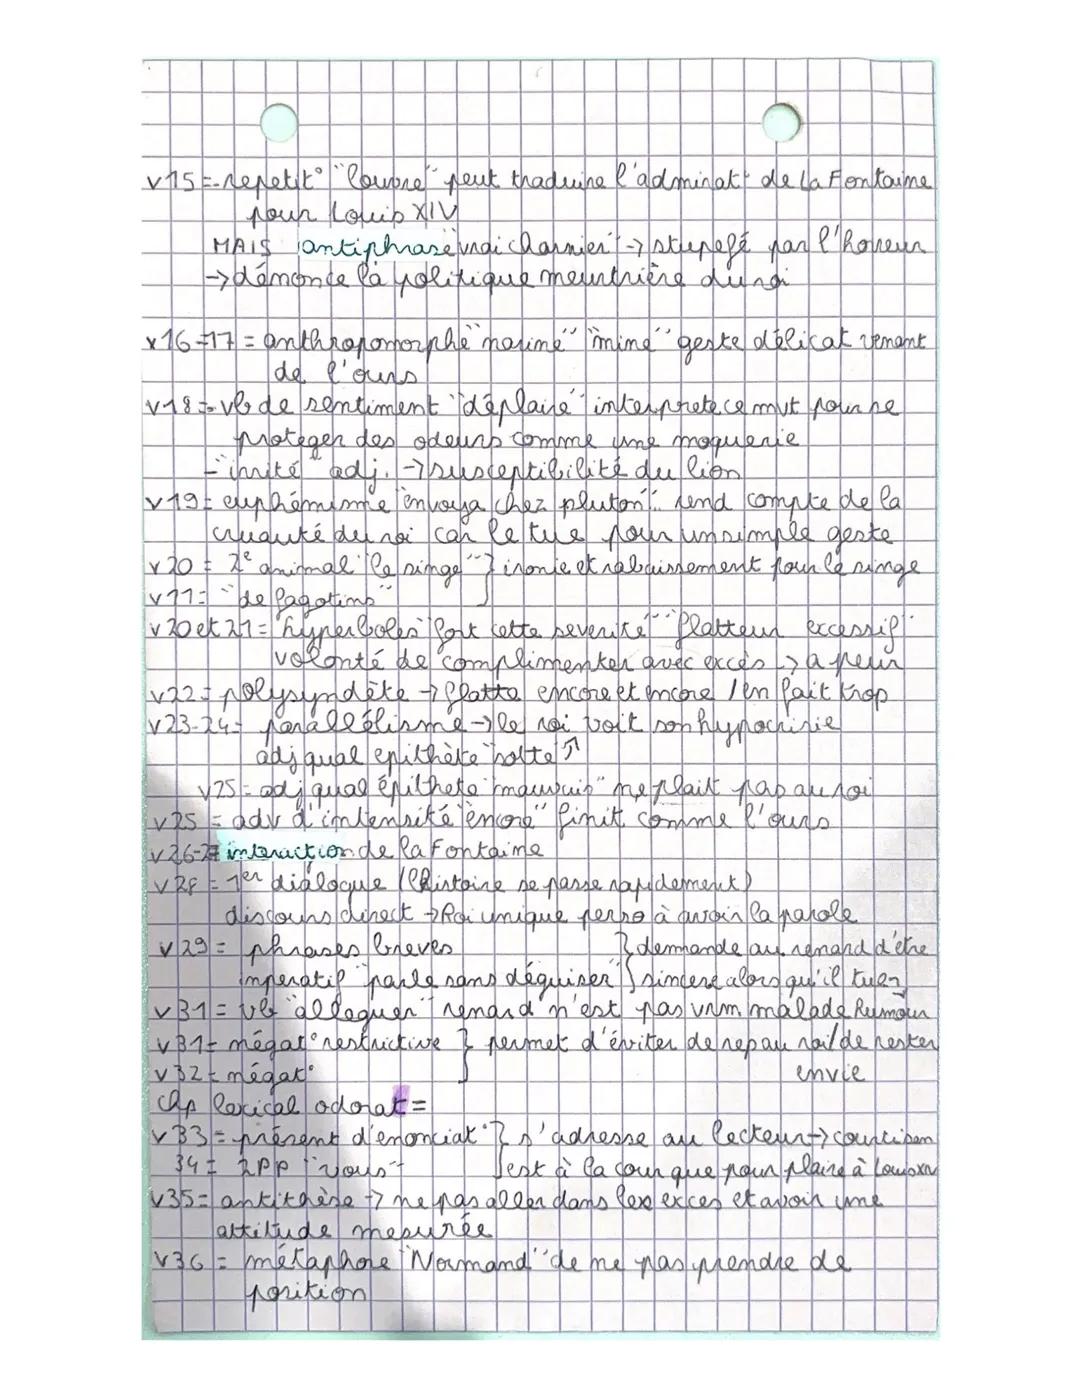 v15 = repetit° "louvre" peut traduire l'adminat° de La Fontaine
pour Louis XIV
MAIS antiphrase "vrai charnier" → stupefé par l'horreur
→ dénonce la politique meurtrière du roi
v16-17 = anthropomorphe "narine" "mine" geste délicat venant
de l'ours
v18 = vb de sentiment "déplaire" interprete ce mvt pour se
proteger des odeurs comme une moquerie
- "irrité" adj. → susceptibilité du lion
v19 = euphémisme "envoya chez pluton" : rend compte de la
cruauté du roi car le tue pour un simple geste
v20 = 2e animal "le singe" } ironie et rabaissement pour le singe
v11 = "de fagotins"
v20 et 21 = hyperboles "fort cette severité" "flatteur excessif"
volonté de complimenter avec excès → a peur
v22 = polysyndète → flatte encore et encore / en fait trop
v23-24 = parallélisme → le roi voit son hypocrisie
adj qual epithète "sotte" ↑
v25 = adj qual épithete "mauvais" ne plait pas au roi
v25 = adv d'intensité "encore" finit comme l'ours
v26-27 interaction de la Fontaine
v28 = 1er dialogue (l'histoire se passe rapidement)
discours direct → Roi unique perso à avoir la parole
v29 = phrases breves } demande au renard d'être
imperatif "parle sans déguiser" } sincere alors qu'il tuer
v31 = vb "alleguer" renard n'est pas vrm malade humour
v31 = négat° restrictive } permet d'éviter de rep au roi / de rester
v32 = négat° envie
Chp lexical odorat =
v33 = présent d'enonciat° } s'adresse au lecteur → courtisan
34 = 2PP "vous" } est à la cour que pour plaire à Louis XIV
v35 = antithèse → ne pas aller dans les exces et avoir une
attitude mesurée
v36 = métaphore "Normand" de ne pas prendre de
position